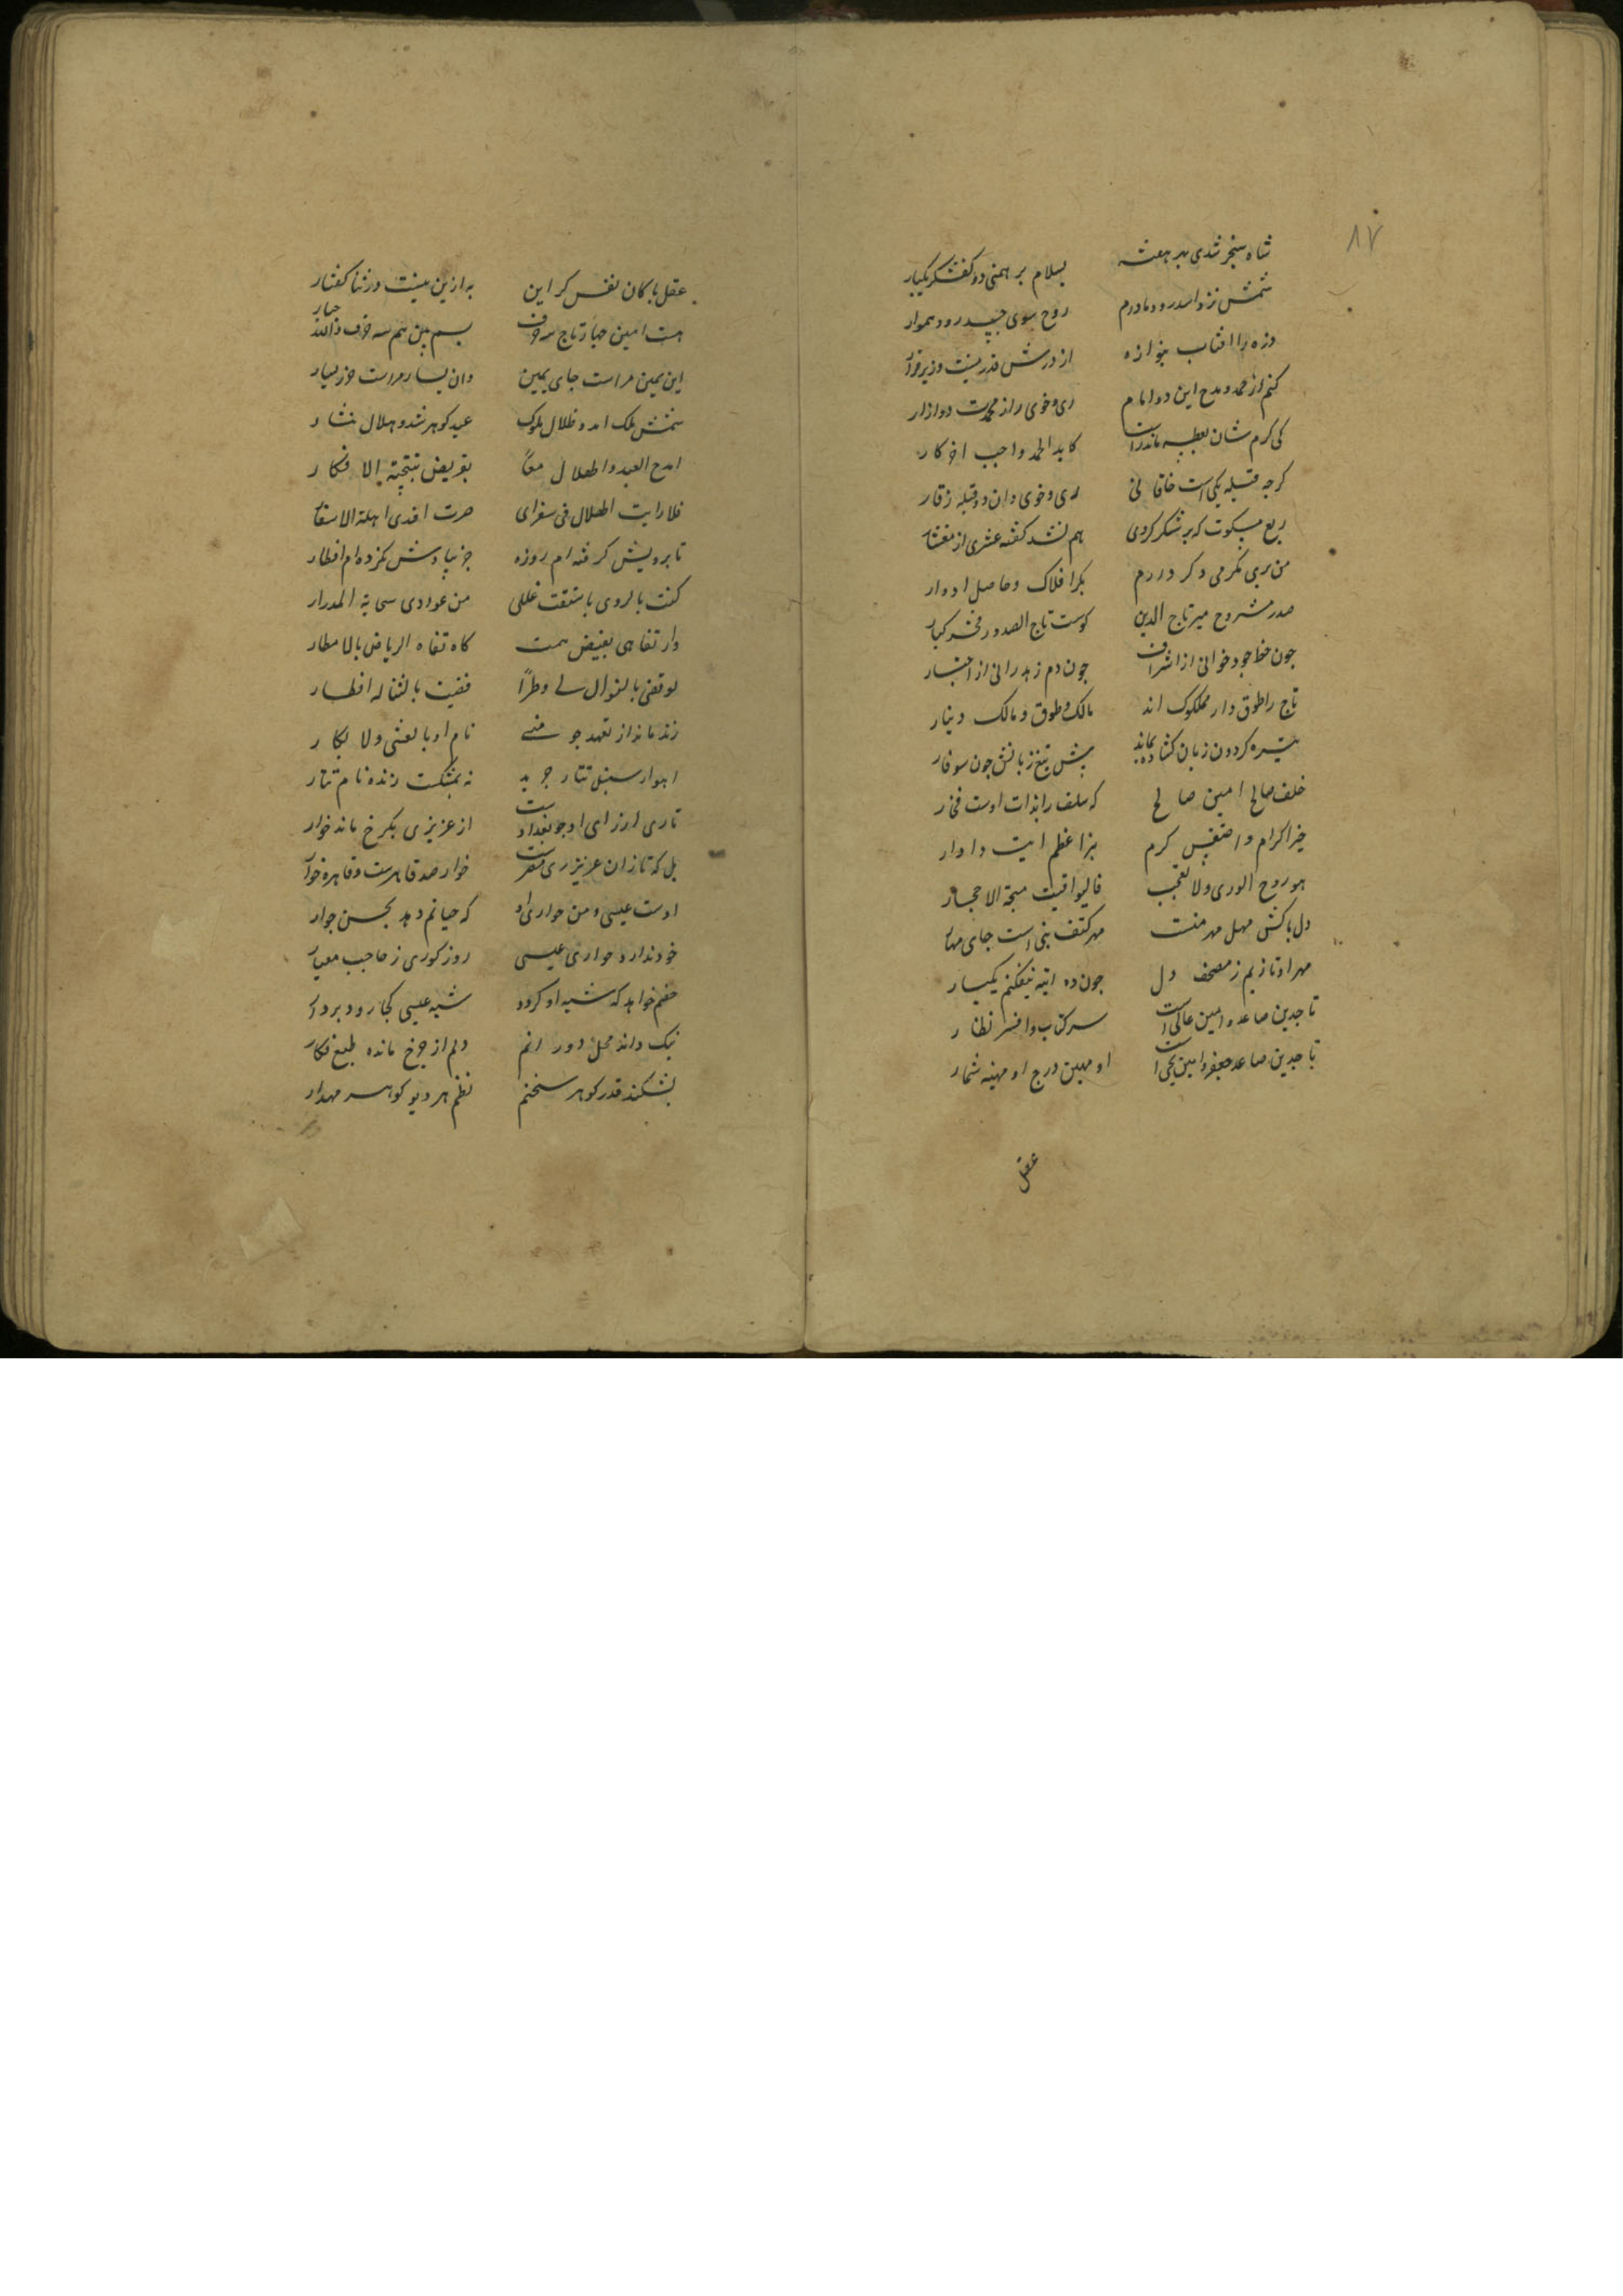 ۸۷
شاه سنجر شدی بهر هفته بسلام برهمنی دو کفشکر یکبار
شمس نزد اسد رود مادرم روح سوی جسد رود هموار
ذره را افتاب بنوازد از درش قدر نیست وزیر
کنم از حمد و مدح این دو امام ری و خوی را از محمدت دو ازار
کی کرم شان بعطسه ماند راست کابد الحمد واجب اخر کار
کرچه قبله یکی است خاقانی ری و خوی دان دو قبله زقار
ربع مسکون که پر شکر کردی هم نشد کفته عشری از معشار
من بری مکرمی دکر دارم بکر افلاک و حاصل ادوار
صدر مشروح میر تاج الدین کوست تاج الصدور فخر کبار
چون خط جود خوانی از اشراف چون دم زهد رانی از اخیار
تاج را طوق دار مملوک اند مالک و طوق و مالک دینار
تیره کردون زبان کشاده بماند پیش تیغ زبانش چون سوفار
خلف صالح امین صالح که سلف را بذات اوست فخار
خیر اکرام و اصغیس کرم بذا عظم ایت دادار
هو روح الوری ولا تعجب فالیواقیت مهجة الاحجار
دل پاکش مهل مهر منست مهر کتف نبی است جای مهار
مهر او تازیم ز مصحف دل چون ده ایه نیفکنم یکبار
تاج دین صاعد و امین عالی است سر کتاب و افسر نظار
تاج دین صاعد جعفر و امین یحیی است او مهین درج او مهینه شمار
عقل
عقل پاکان نفس کر این به ازین نیست در ثنا کفتار
هست امین چهار تاج سه حرف بسم بین هم سه حرف و الله چهار
این یمین مراست جای یمین وان یسار مراست حرز یسار
شمس ملک امد و ظلال ملوک عید کوهر شد و هلال نثار
امدح العید و الهلال معا بقریض نتیجة الافکار
فلا رایت الهلال فی سفرای صرت افدی اهلة الاسفار
تا برویش کرفته ام روزه جز بیادش نکرده ام افطار
کنت بالروی باسقت عللی من غوادی سحابة المدرار
وارتقا هی بفیض همت کارتقاه الریاض بالامطار
لو قضی بالنوال لی وطرا قضیت بالثنا له افطار
زنده ماند از تعهد جو منی نام او بالعشی والابکار
اهوار سنبل تتار چرید نه بمشکست زنده نام تتار
تا ری ارزای او چو بغداد است از عزیزی بکرخ ماند خوار
بل که تا زان عزیز ری مصر است خوار صد قاهرست و قاهره خوار
اوست عیسی و من حواری او که حیاتم دهد بحسن جوار
خود ندارد حواری عیسی روز کوری ز حاجب معیار
خصم خواهد که شبه او کردد شبه عیسی کجا رود بر دار
نیک داند محل دور انم دلم از چرخ مانده طبع فکار
بشکند قدر کوهر سخنم نظم هر دیو کوهر مهدار